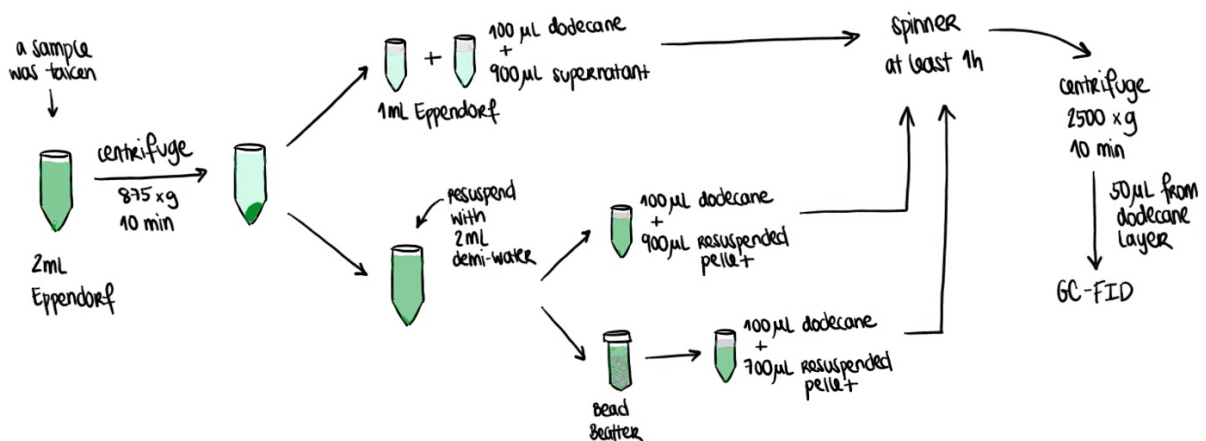 a sample
was taken
centrifuge
875 xg
10 min
2mL
Eppendorf
+
1mL Eppendorf
100 µL dodecane
+
900µL supernatant
resuspend
with
2mL
demi-water
100µL dodecane
+
900µL resuspended
pellet
Bead
Beatter
100µL dodecane
+
700µL resuspended
pellet
spinner
at least 1h
centrifuge
2500 xg
10 min
50µL from
dodecane
layer
GC-FID